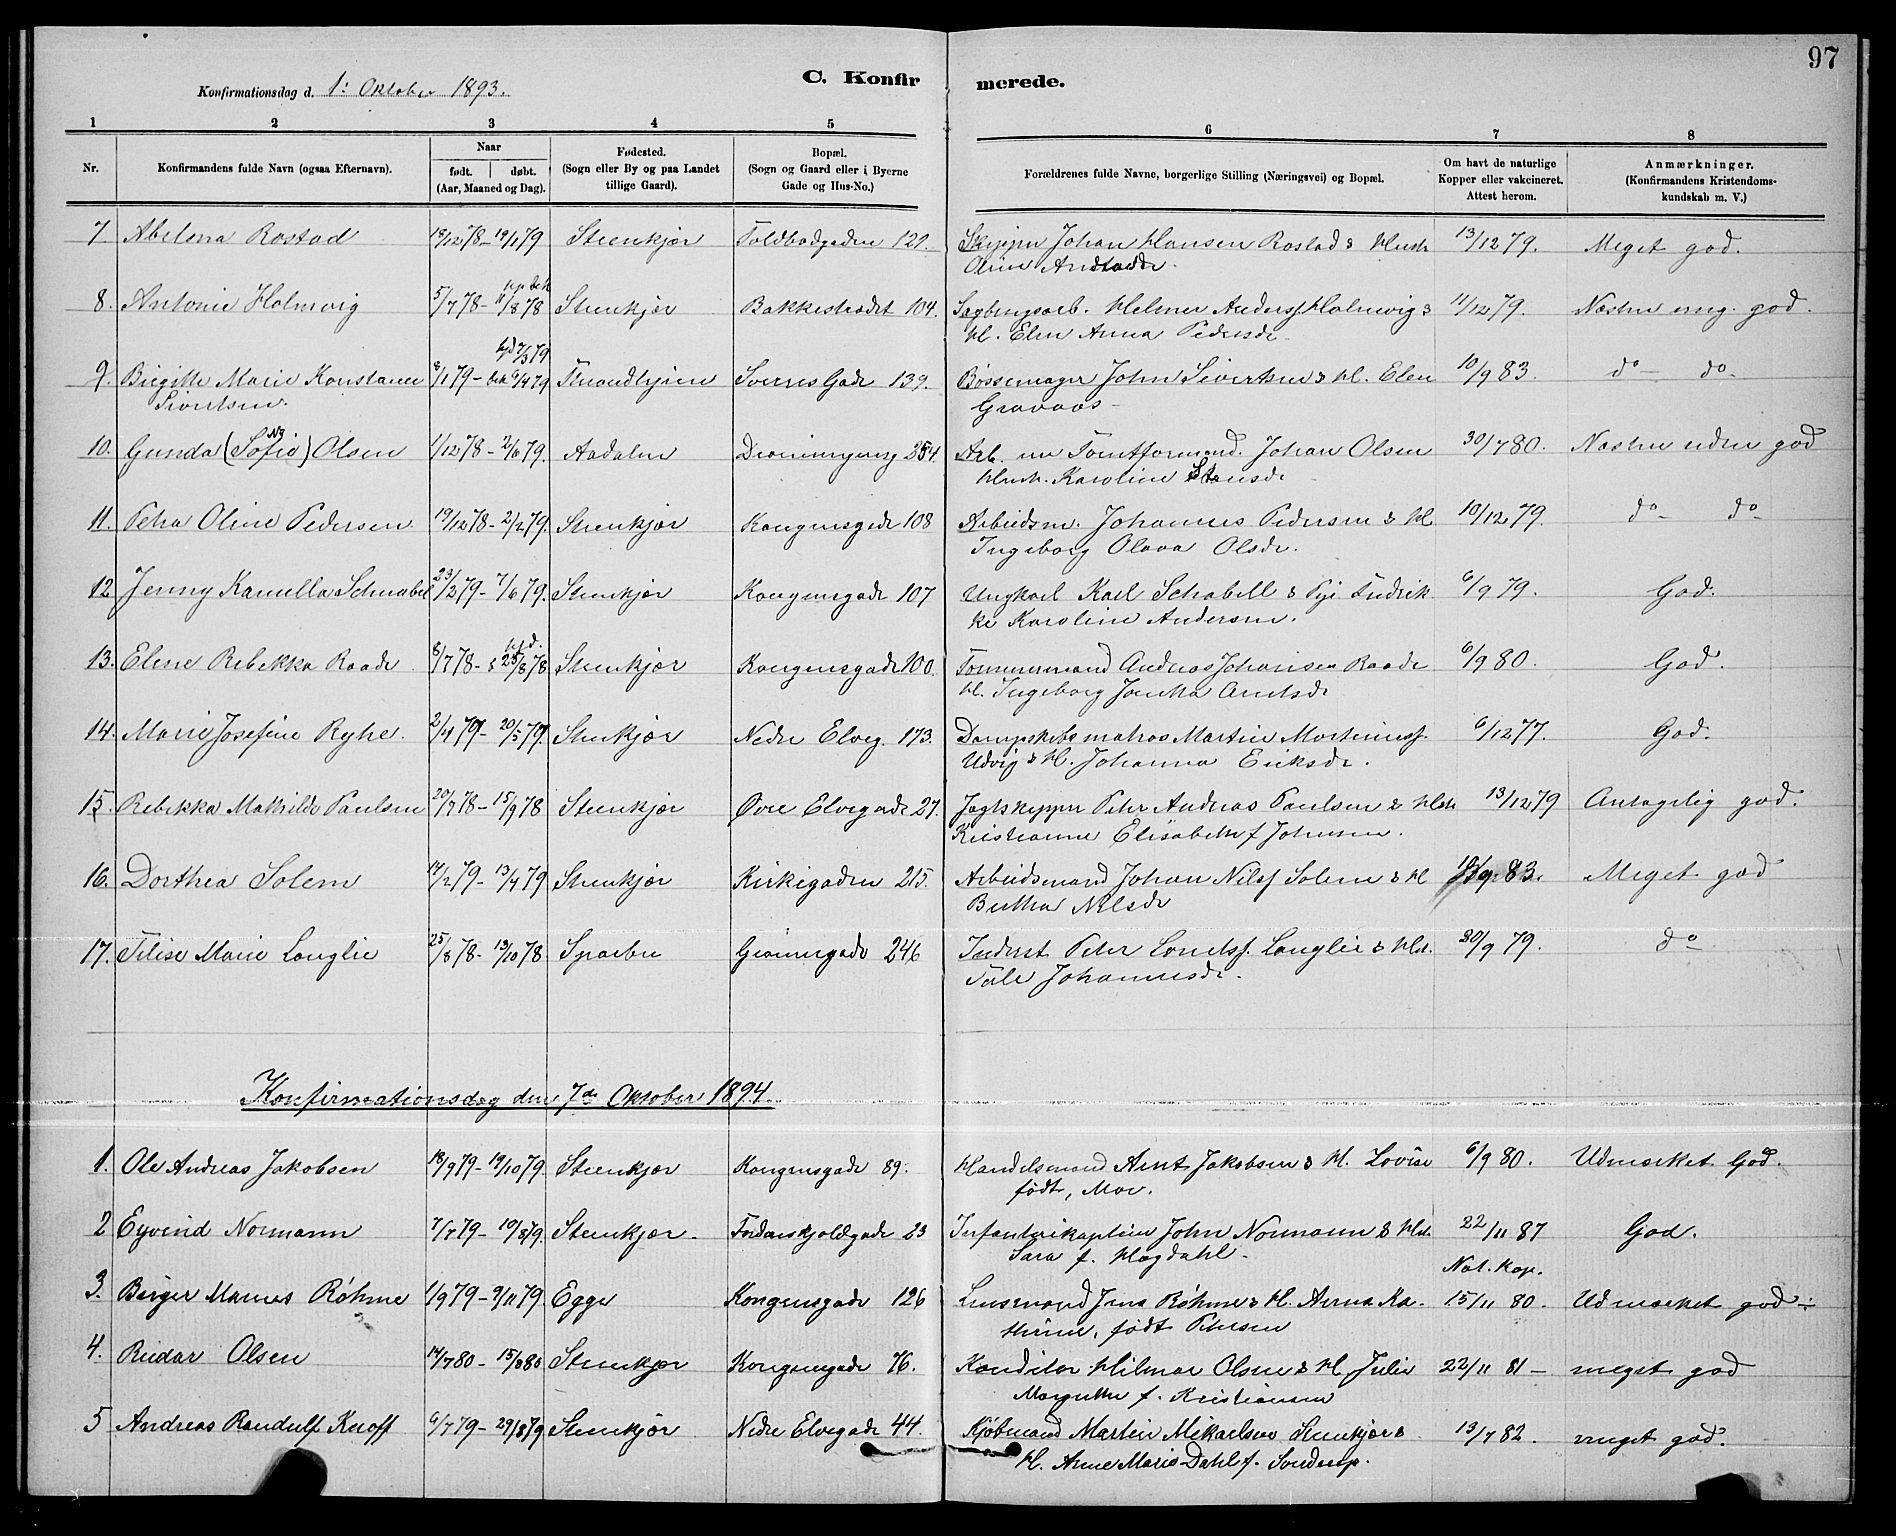 97
Konfirmationsdag d. 1: Oktober 1893.
C. Konfirmerede.
1 2 3 4 5 6 7 8
Nr.
Konfirmandens fulde Navn (ogsaa Efternavn).
Naar
født. døbt.
(Aar, Maaned og Dag).
Fødested.
(Sogn eller By og paa Landet
tillige Gaard).
Bopæl.
(Sogn og Gaard eller i Byerne
Gade og Hus-No.)
Forældrenes fulde Navne, borgerlige Stilling (Næringsvei) og Bopæl.
Om havt de naturlige
Kopper eller vakcineret.
Attest herom.
Anmærkninger.
(Konfirmandens Kristendoms-
kundskab m. V.)
7. Abelona Rostad 18/12 78 - 19/1 79 Steenkjær Toldbodgaden 121. Skipper Johan Hansen Rostad & Hust. 13/12 79. Meget god.
Oline
8. Antonie Holmvig 5/7 78 - 11/8 78 Steenkjær Bakkestrædet 104. Sagbrugsarb. Helmer Andersf Holmvig & 11/12 79. Næsten mg. god.
H. Elen Anna Pedersdr.
9. Birgitte Marie Konstance 8/1 79 - 6/4 79 Trondhjem Sverres Gade 139. Bøssemager John Sivertsen & H. Elen 10/9 83 do - do -
Sivertsen. Gravaas -
10. Gunda (Sofie) Olsen 1/12 78 - 2/6 79. Aadalen Dronningensg 254. Arb. nu Tomtformand. Johan Olsen 30/7 80. Næsten uden god
Hust. Karoline
11. Petra Oline Pedersen 19/12 78 - 2/2 79. Steenkjær Kongensgade 108 Arbeidsm. Johannes Pedersen & H. 10/12 79. do - do
Ingeborg Olava Olsdr.
12 Jenny Kamilla Schnabel 23/2 79 - 7/6 79. Steenkjær Kongensgade 107 Ungkarl Karl Schabell & Pige Fredrik- 6/9 79. God.
ke Karoline Andersen.
13. Eline Rebekka Raade 8/7 78 - 25/8 78 Steenkjær Kongensgade 100. Tømmermand Andreas Johansen Raade 6/9 80. God.
H. Ingeborg Jonetta Arntsdr
14. Marie Josefine Ryhe. 2/4 79 - 20/5 79. Steenkjær Nedre Elveg. 173. Dampskibsmatros Martin Mortinusf. 6/12 77. God.
Udvig & H. Johanna Eriksdr.
15. Rebekka Mathilde Paulsen 20/7 78 - 15/9 78 Steenkjær Øvre Elvegade 27. Jagtskipper Peter Andreas Paulsen & Hst. 13/12 79 Antagelig god.
Kristianne Elisabeth f Johnsen.
16. Dorthea Solem 14/2 79 - 13/4 79 Steenkjær Kirkegaden 215. Arbeidsmand Johan Nilsf Solem & H 10/9 83. Meget god
Berthea Nilsdr
17. Tilise Marie Langlie 25/8 78 - 13/10 78 Sparbu Grønnegade 246 Inderst Peter Lorntsf. Langlie & Hst. 20/9 79. do -
Tale Johannesdr.
Konfirmationsdag den 7de Oktober 1894.
1. Ole Andreas Jakobsen 18/9 79 - 19/10 79 Steenkjær Kongensgade 89. Handelsmand Arnt Jakobsen & H. Lovise 6/9 80. Udmærket God.
født, Moe.
2 Eyvind Normann 7/7 79 - 10/8 79. Steenkjær - Tordenskjoldgade 23 Infanterikaptein John Normann & Hst. 22/11 87 God.
Sara f. Hogdahl - Nat. Kop.
3. Birger Marius Røhme 1/9 79 - 9/11 79. Egge Kongensgade 126 Lensmand Jens Røhme & H. Anna Ka- 15/11 80. Udmærket god -
thrine, født Petersen
4. Reidar Olsen 14/7 80 - 15/8 80 Steenkjær Kongensgade 76. Konditor Hilmar Olsen & H. Julie 22/11 81 - meget god
Margrethe f. Kristiansen
5 Andreas Randulf Knoff 6/7 79 - 29/8 79 Steenkjær Nedre Elvegade 44. Kjøbmand Martin Mikaelsen Steenkjær & 13/7 82. meget god.
H. Anne Marie Dahl f.